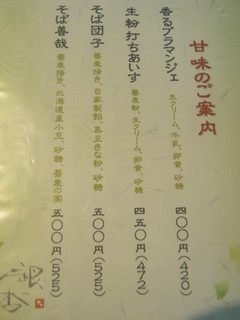 甘味のご案内
香るブラマンジェ
生クリーム、牛乳、卵黄、砂糖
四〇〇円(420)
生粉打ちあいす
蕎麦粉、生クリーム、卵黄、砂糖
四五〇円(472)
そば団子
蕎麦掻き、自家製餡、黒豆きな粉、砂糖
五〇〇円(525)
そば善哉
蕎麦掻き、北海道産小豆、砂糖、蕎麦の実
五〇〇円(525)
銀杏